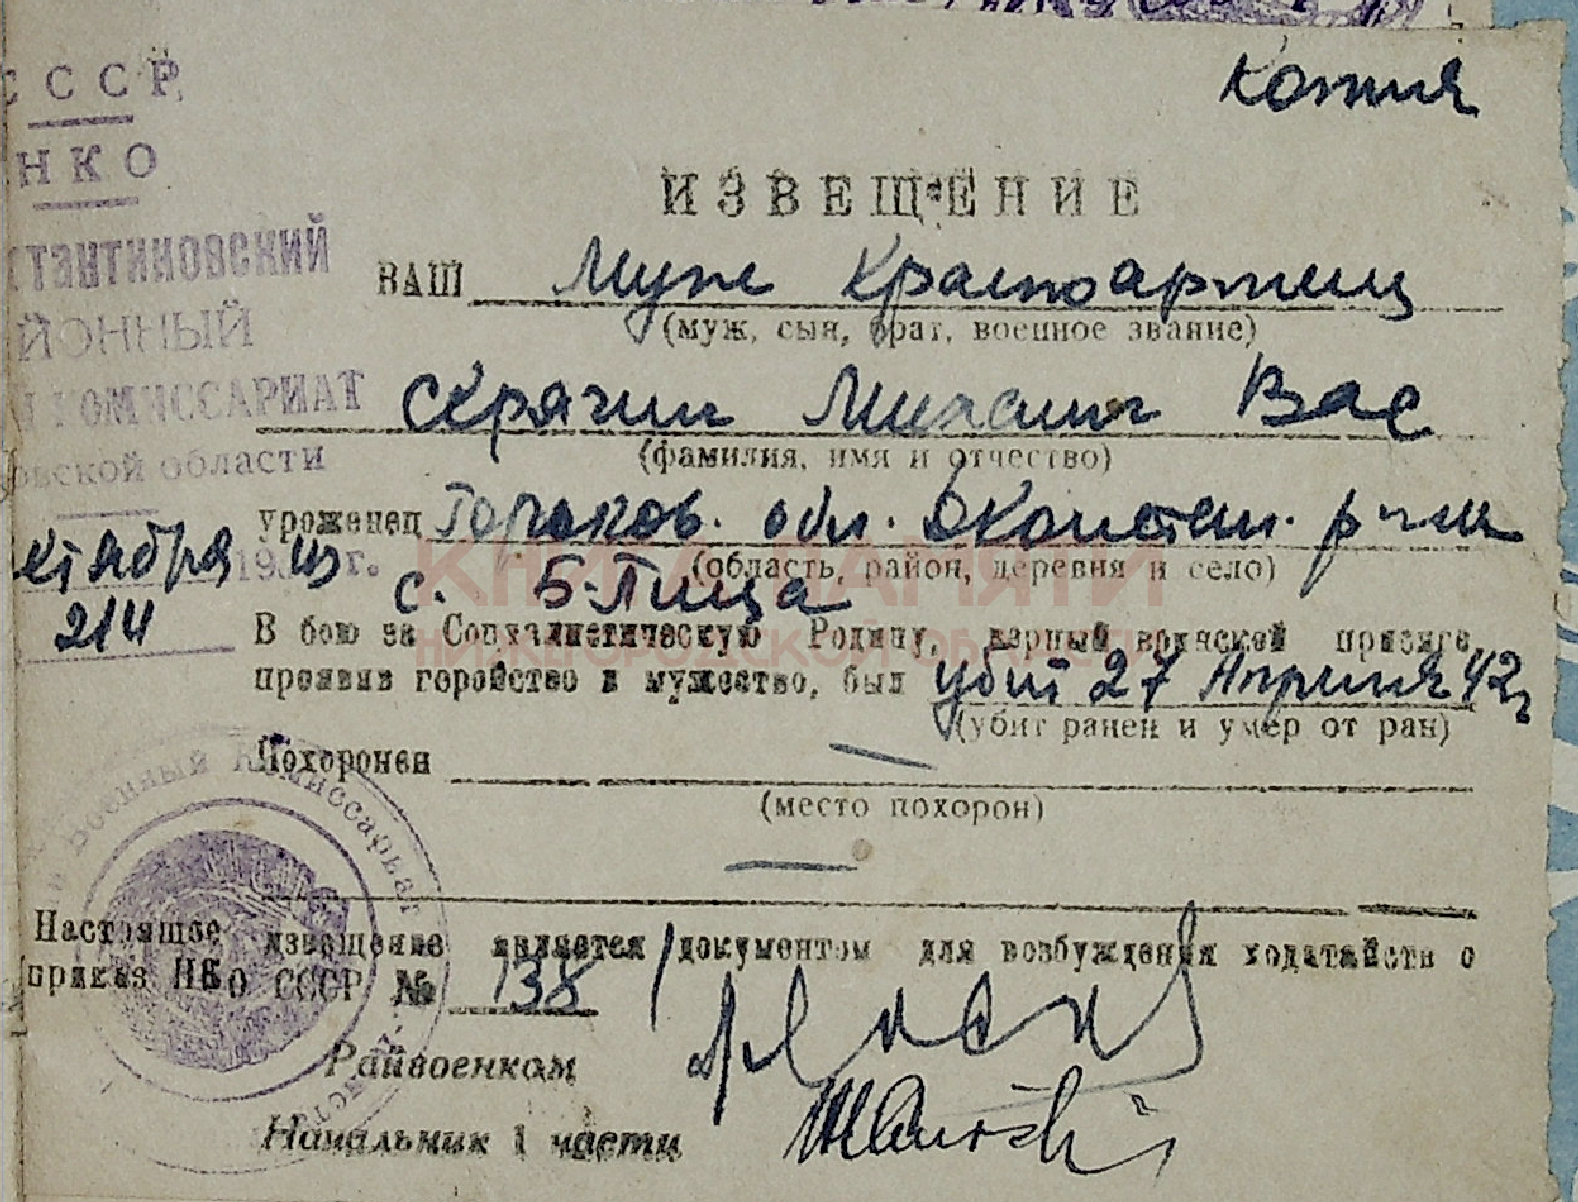 Копия
СССР
НКО
тантиновский
ЙОННЫЙ
КОМИССАРИАТ
овской области
ктября 19 г.
214
ИЗВЕЩЕНИЕ
ВАШ Муж Красноармеец
(муж, сын, брат, военное звание)
Скрячин Михаил Вас
(фамилия, имя и отчество)
уроженец Горьков. обл. р-на
(область, район, деревня и село)
с. Б-Пица
В бою за Социалистическую Родину, верный воинской присяге,
проявив геройство и мужество, был убит 27 Апреля 42г
(убит ранен и умер от ран)
Похоронен —
(место похорон)
—
Настоящее извещение является документом для возбуждения ходатайств о
приказ НКО СССР № 138
Райвоенком
Начальник 1 части
Военный Комиссариат
КНИГА ПАМЯТИ
НИЖЕГОРОДСКОЙ ОБЛАСТИ